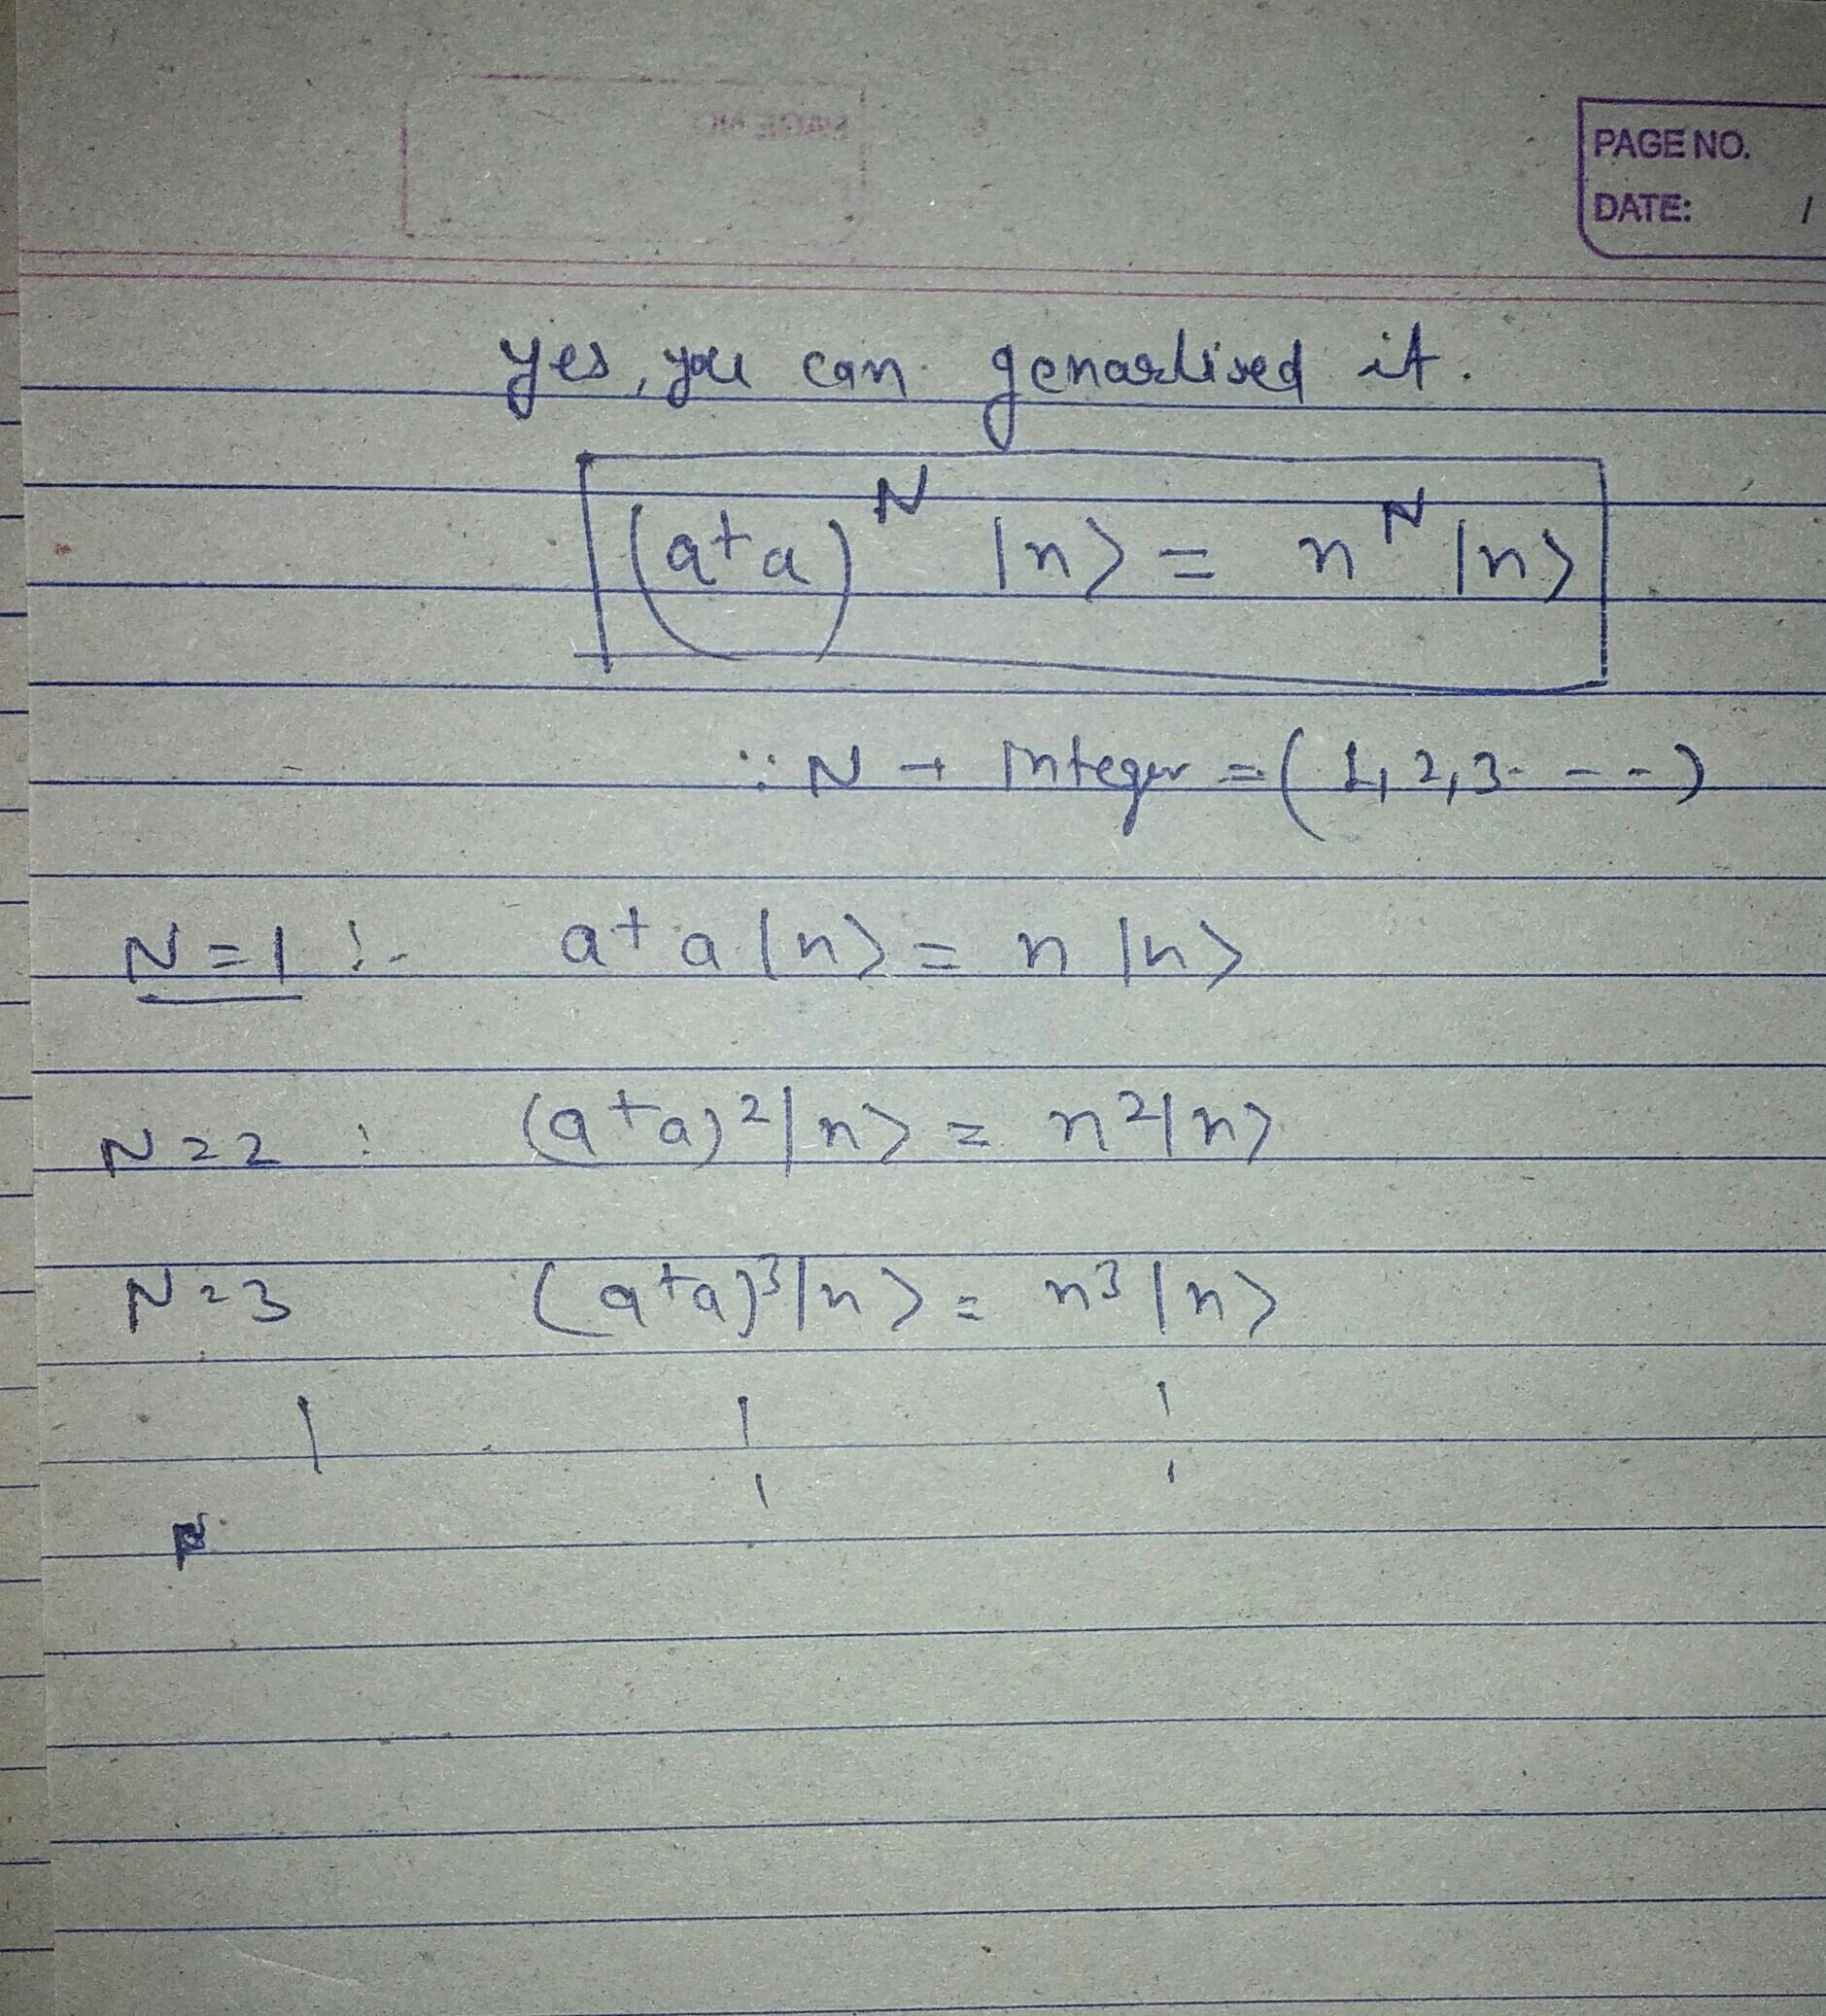 PAGE NO.
DATE: /
yes, you can genarlised it.
(a+a)^N |n> = n^N |n>
∵ N → Integer = (1, 2, 3 - - -)
N=1 :- a+a |n> = n |n>
N=2 : (a+a)^2 |n> = n^2 |n>
N=3 (a+a)^3 |n> = n^3 |n>
N